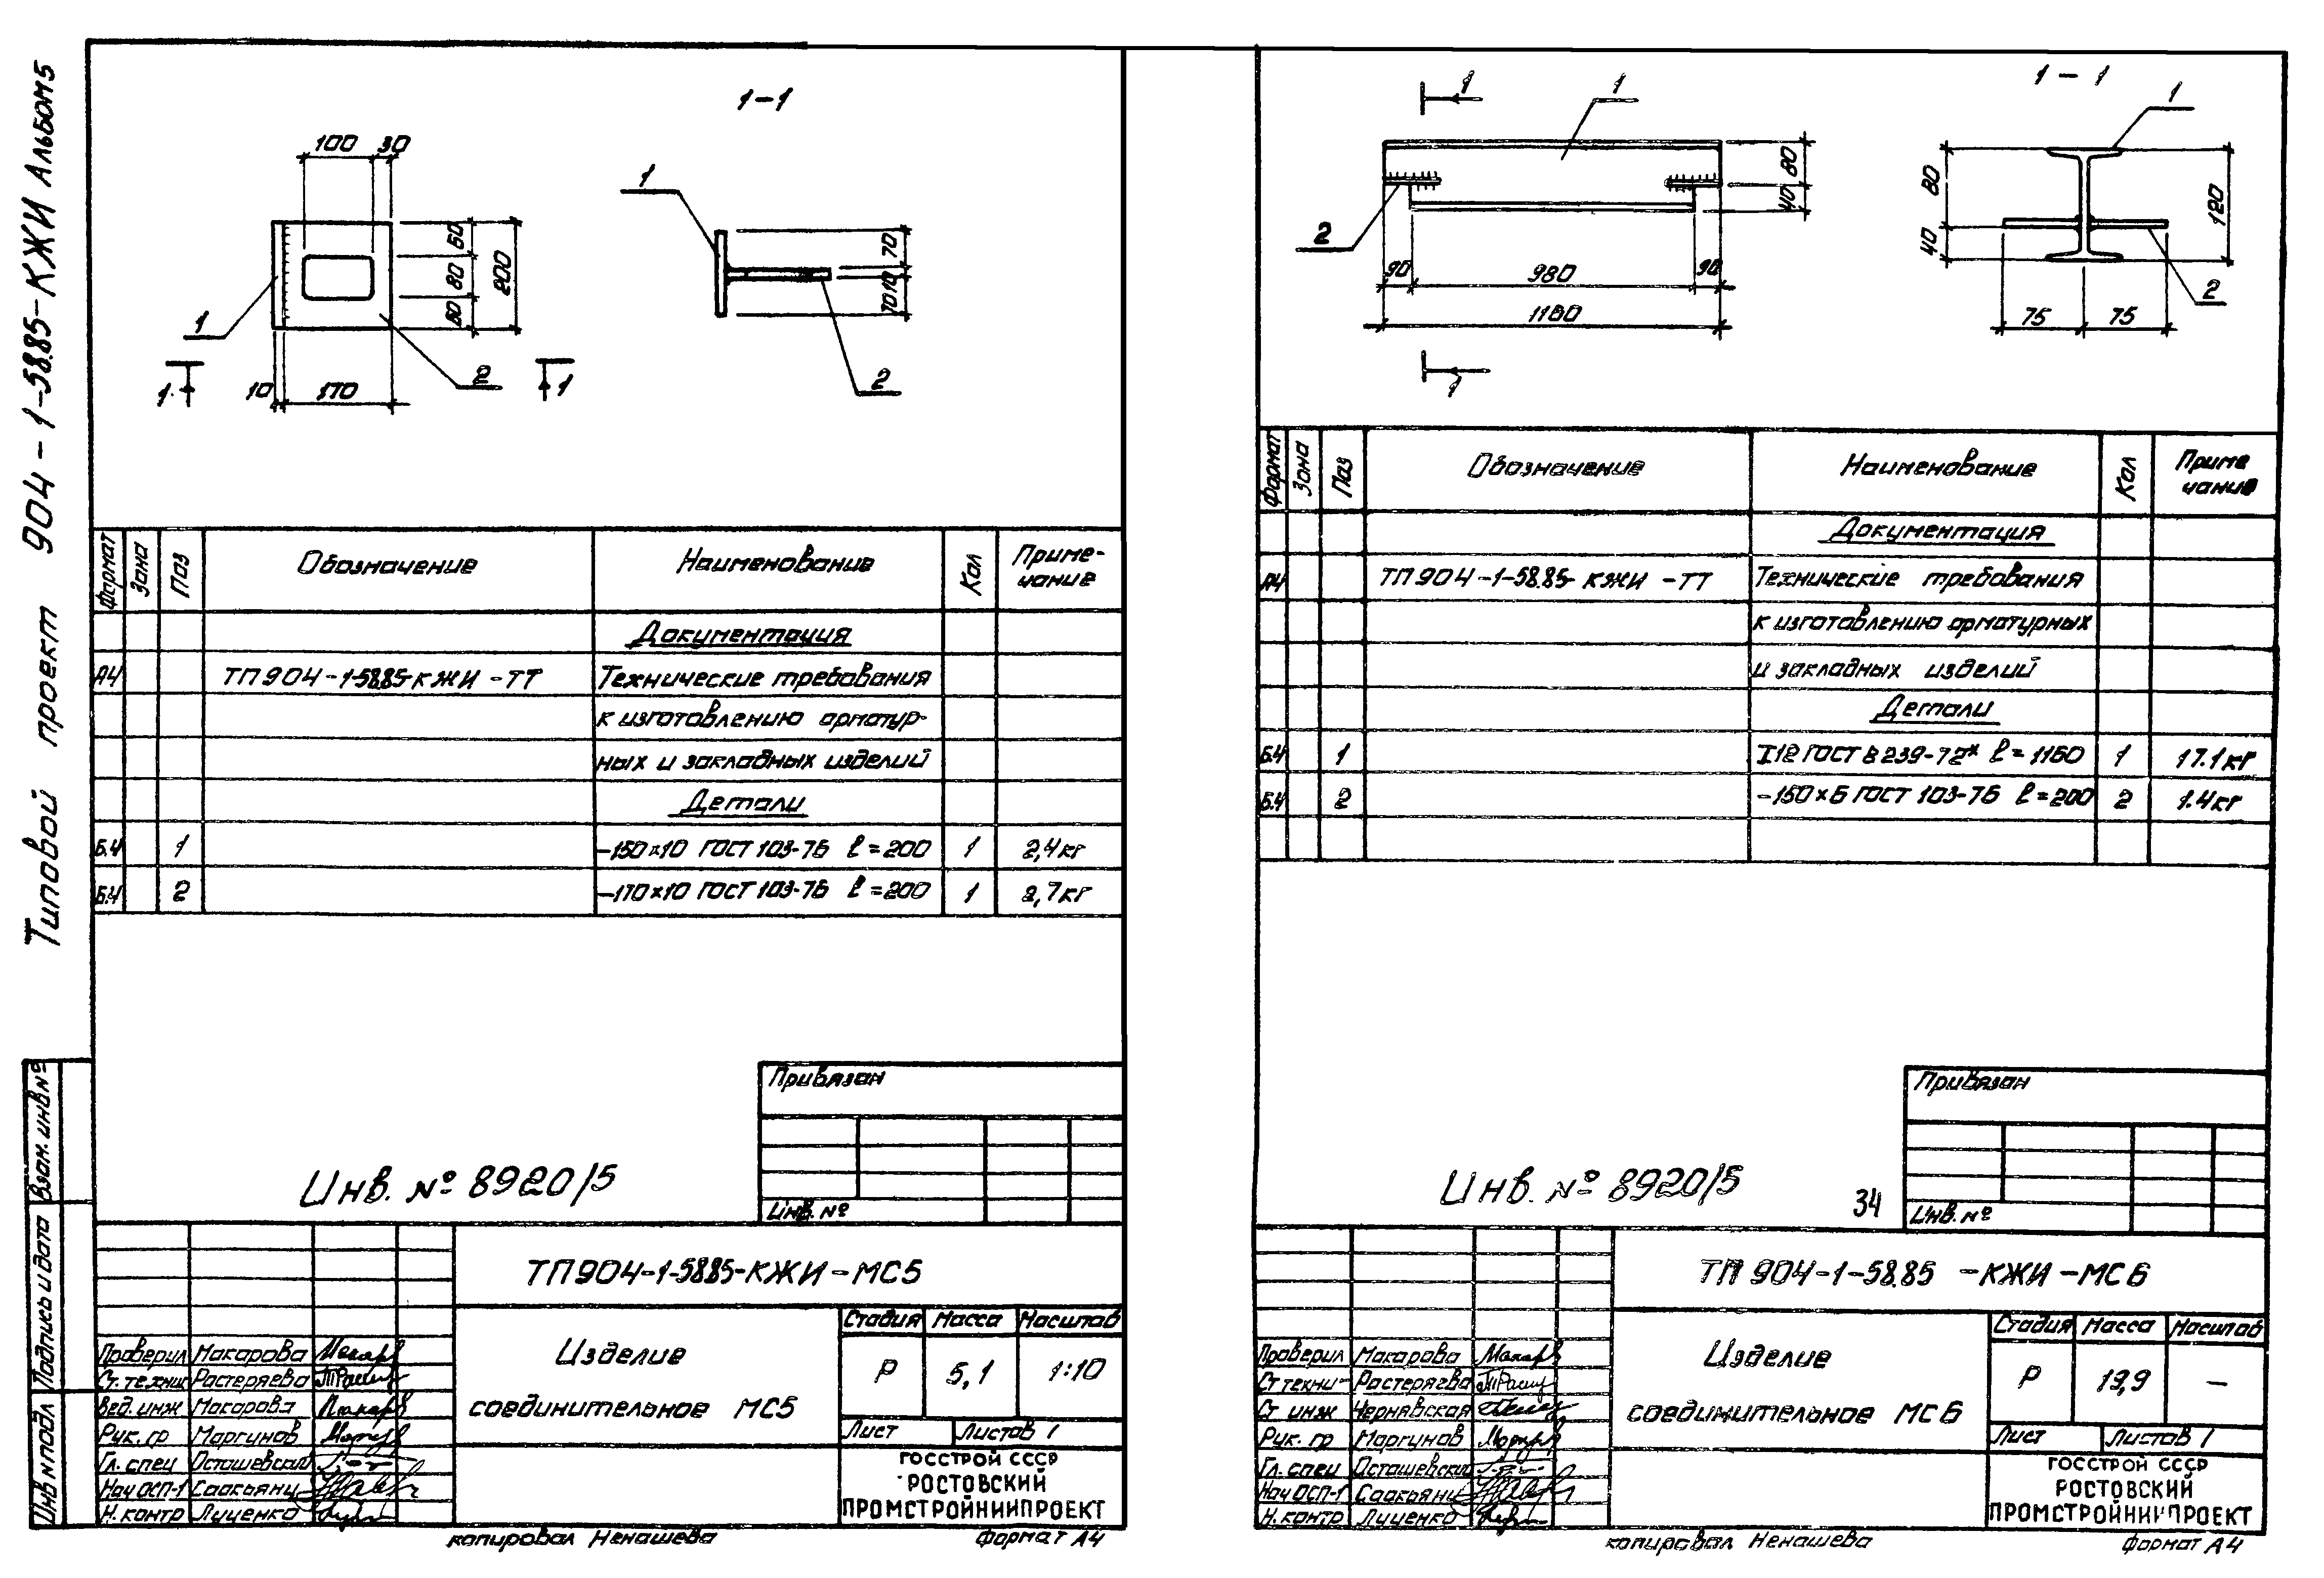 Типовой проект 904-1-58.85-КЖИ Альбом 5
1-1
100 30
60
80
60
200
1
2
10 170
1 1
1
70
10
70
2
Формат Зона Поз Обозначение Наименование Кол Приме-
чание
Документация
А4 ТП 904-1-58.85-КЖИ-ТТ Технические требования
к изготовлению арматур-
ных и закладных изделий
Детали
Б.4 1 -150х10 ГОСТ 103-76 ℓ=200 1 2,4кг
Б.4 2 -170х10 ГОСТ 103-76 ℓ=200 1 2,7кг
Привязан
Инв. №
Инв. № 8920/5
Взам. инв №
Подпись и дата
Инв № подл
ТП 904-1-58.85-КЖИ-МС5
Изделие
соединительное МС5
Стадия Масса Масштаб
Р 5,1 1:10
Лист Листов 1
ГОССТРОЙ СССР
РОСТОВСКИЙ
ПРОМСТРОЙНИИПРОЕКТ
Проверил Макарова
Ст. техник Растеряева
Вед. инж Макарова
Рук. гр Маргунов
Гл. спец Осташевский
Нач ОСП-1 Саакьянц
Н. контр Луценко
копировал Ненашева формат А4
1
1
1-1
1
80
40
2
90 980 90
1160
1
80
40
120
2
75 75
Формат Зона Поз Обозначение Наименование Кол Приме
чание
Документация
А4 ТП 904-1-58.85-КЖИ-ТТ Технические требования
к изготовлению арматурных
и закладных изделий
Детали
Б.4 1 I12 ГОСТ 8239-72* ℓ=1160 1 17.1кг
Б.4 2 -150х6 ГОСТ 103-76 ℓ=200 2 1.4кг
Привязан
Инв. №
Инв. № 8920/5 34
ТП 904-1-58.85-КЖИ-МС6
Изделие
соединительное МС6
Стадия Масса Масштаб
Р 19,9 —
Лист Листов 1
ГОССТРОЙ СССР
РОСТОВСКИЙ
ПРОМСТРОЙНИИПРОЕКТ
Проверил Макарова
Ст техни- Растеряева
Ст инж Чернявская
Рук. гр Маргунов
Гл. спец Осташевский
Нач ОСП-1 Саакьянц
Н. контр Луценко
копировал Ненашева формат А4